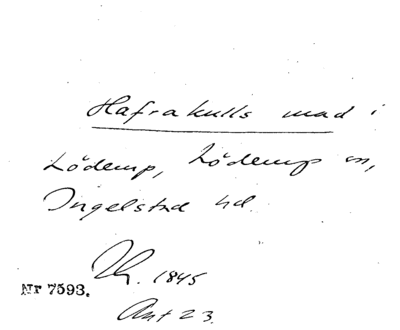 Hafrakulls mad i
Lödemp, Lödemp sn,
Ingelstad hd.
1845
Nr 7593.
Ant 23.